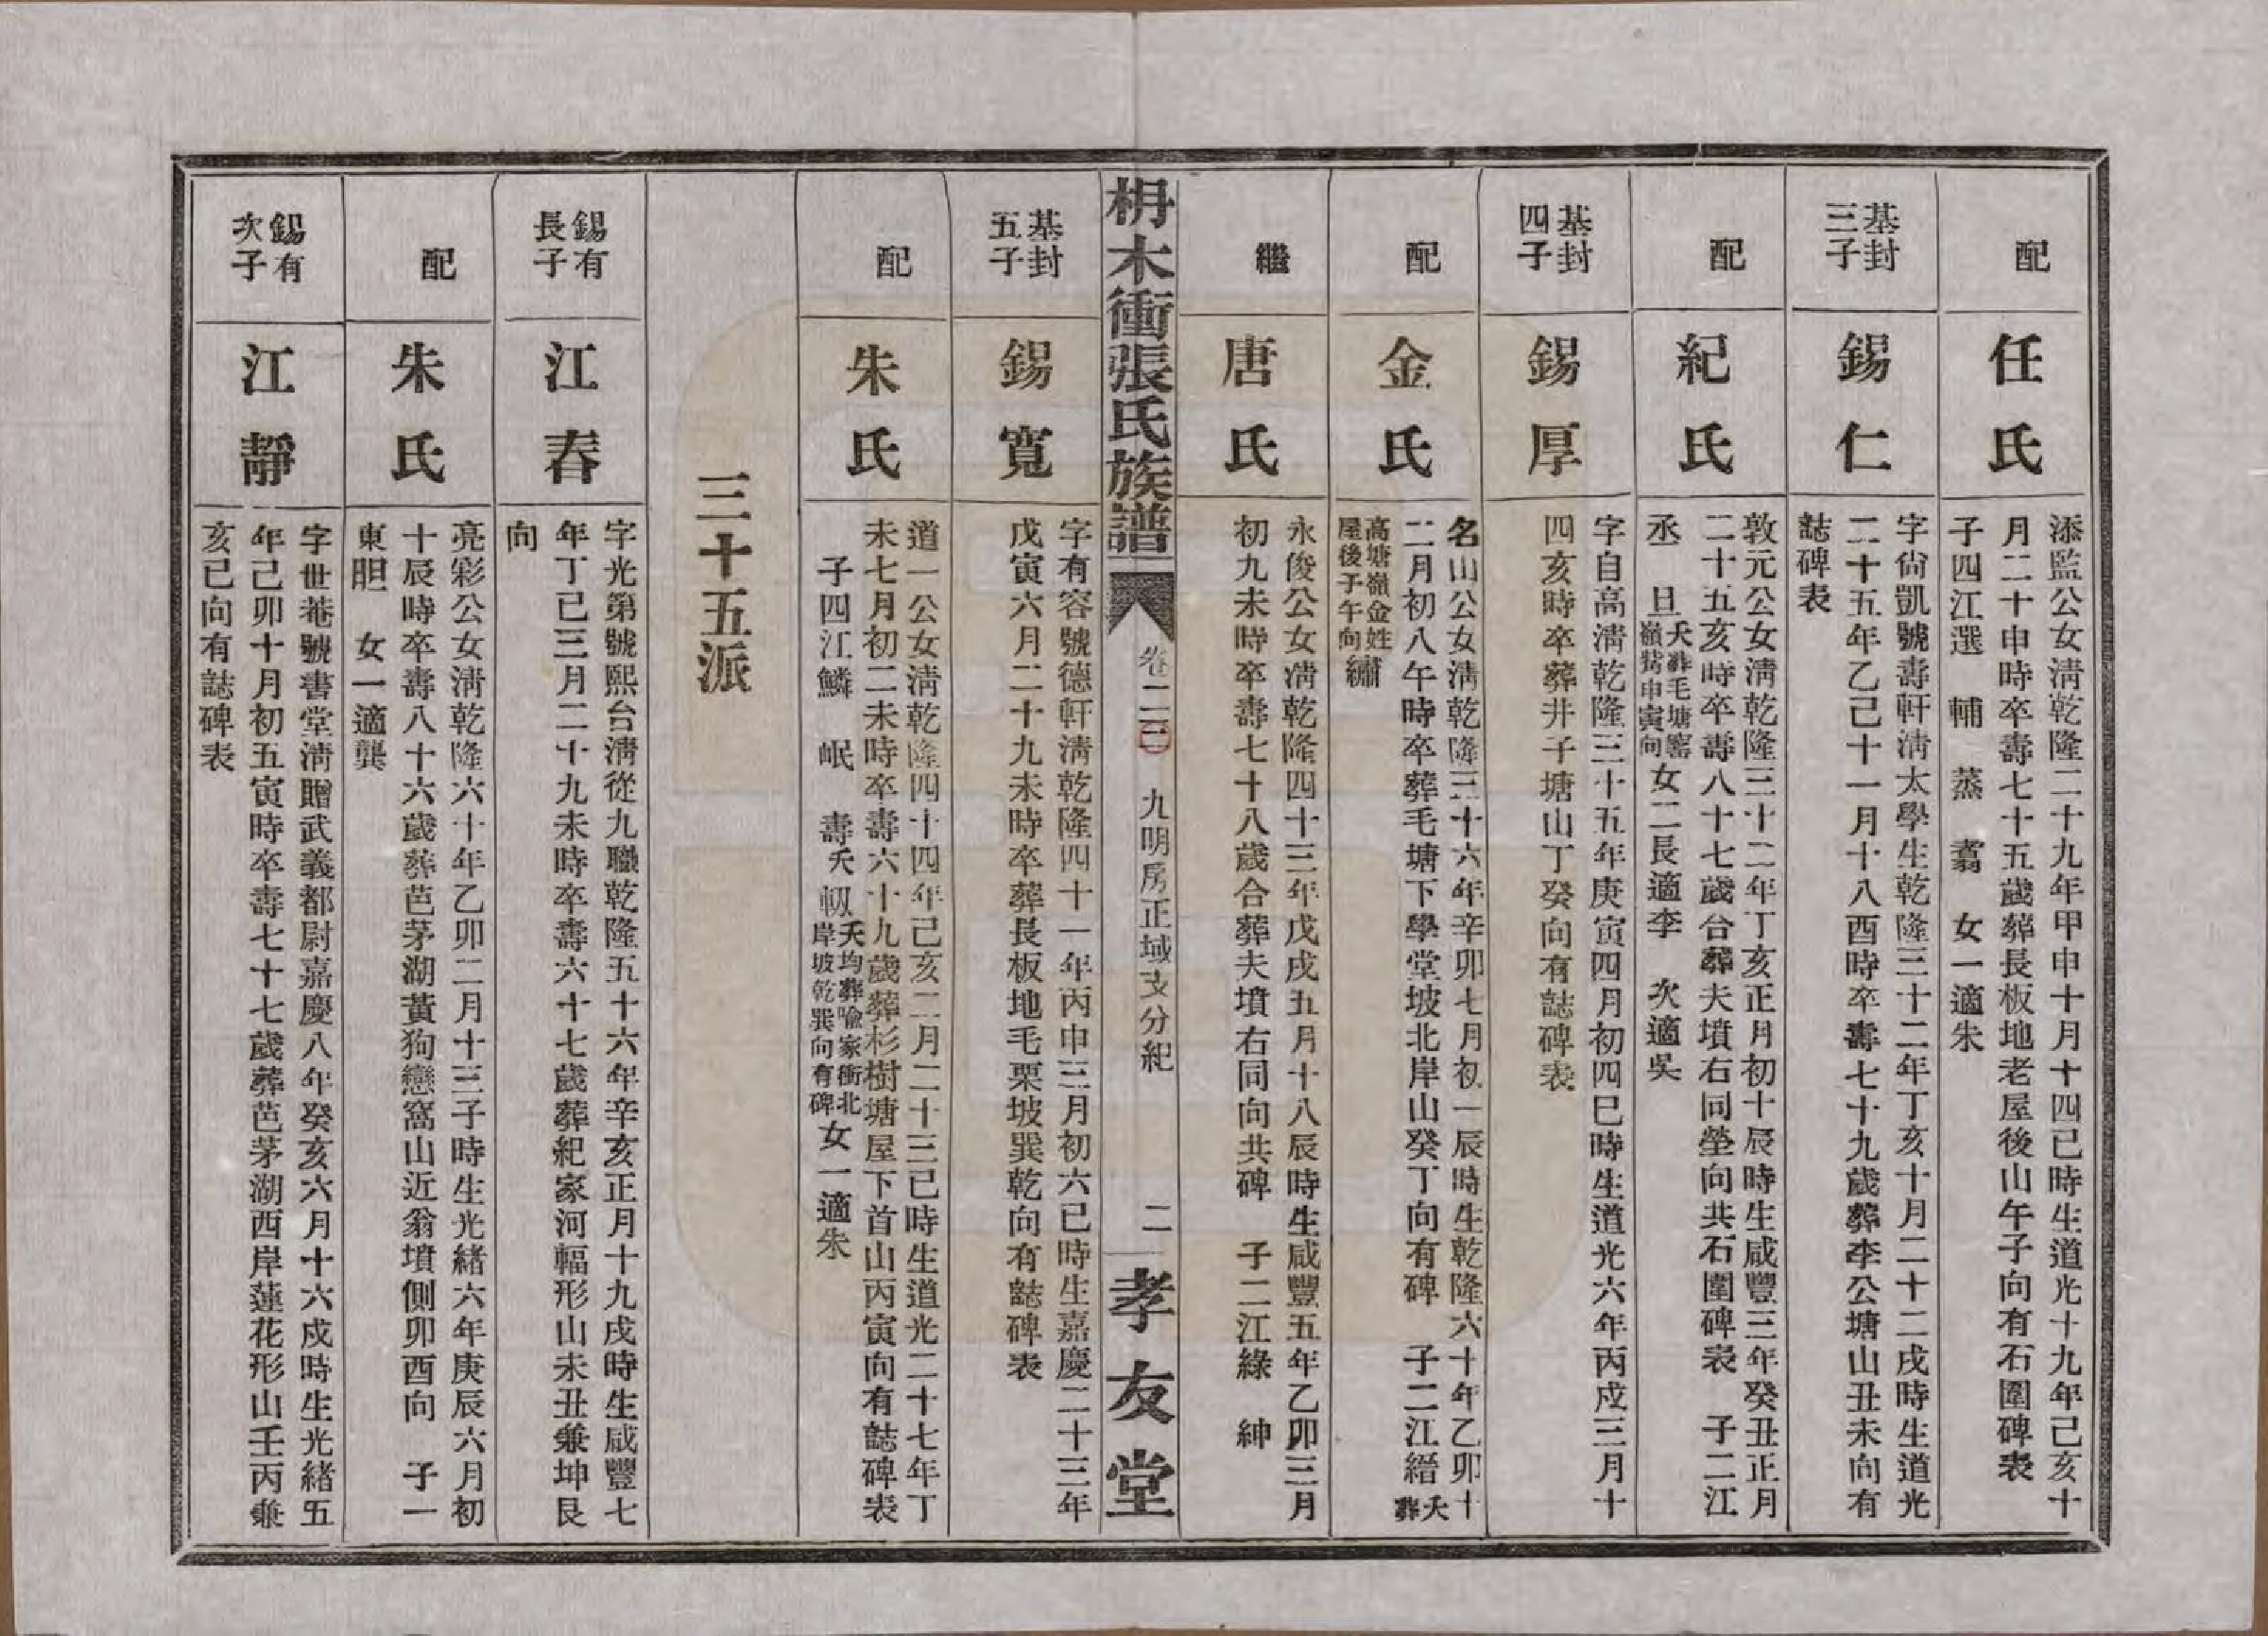 配
任氏
添監公女淸乾隆二十九年甲申十月十四巳時生道光十九年己亥十
月二十申時卒壽七十五歲葬長板地老屋後山午子向有石圍碑表
子四江選　輔　蒸　翥　女一適朱
基封
三子
錫仁
字尙凱號壽軒淸太學生乾隆三十二年丁亥十月二十二戌時生道光
二十五年乙巳十一月十八酉時卒壽七十九歲葬李公塘山丑未向有
誌碑表
配
紀氏
敦元公女淸乾隆三十二年丁亥正月初十辰時生咸豐三年癸丑正月
二十五亥時卒壽八十七歲合葬夫墳右同塋向共石圍碑表　子二江
丞　旦
夭葬毛塘窰
嶺背申寅向
女二長適李　次適吳
基封
四子
錫厚
字自高淸乾隆三十五年庚寅四月初四巳時生道光六年丙戌三月十
四亥時卒葬井子塘山丁癸向有誌碑表
配
金氏
名山公女淸乾隆三十六年辛卯七月初一辰時生乾隆六十年乙卯十
二月初八午時卒葬毛塘下學堂坡北岸山癸丁向有碑　子二江縉
夭葬
高塘嶺金姓
屋後子午向
繡
繼
唐氏
永俊公女淸乾隆四十三年戊戌五月十八辰時生咸豐五年乙卯三月
初九未時卒壽七十八歲合葬夫墳右同向共碑　子二江綠　紳
枬木衝張氏族譜
卷二三　九明房正域支分紀　二
孝友堂
基封
五子
錫寬
字有容號德軒淸乾隆四十一年丙申三月初六巳時生嘉慶二十三年
戊寅六月二十九未時卒葬長板地毛栗坡巽乾向有誌碑表
配
朱氏
道一公女淸乾隆四十四年己亥二月二十三巳時生道光二十七年丁
未七月初二未時卒壽六十九歲葬杉樹塘屋下首山丙寅向有誌碑表
子四江鱗　岷　壽夭　軔
夭均葬喩家衝北
岸坡乾巽向有碑
女一適朱
三十五派
錫有
長子
江春
字光第號熙台淸從九職乾隆五十六年辛亥正月十九戌時生咸豐七
年丁巳三月二十九未時卒壽六十七歲葬紀家河輻形山未丑兼坤艮
向
配
朱氏
亮彩公女淸乾隆六十年乙卯二月十三子時生光緖六年庚辰六月初
十辰時卒壽八十六歲葬芭茅湖黃狗戀窩山近翁墳側卯酉向　子一
東胆　女一適龔
錫有
次子
江靜
字世菴號書堂淸贈武義都尉嘉慶八年癸亥六月十六戌時生光緖五
年己卯十月初五寅時卒壽七十七歲葬芭茅湖西岸蓮花形山壬丙兼
亥巳向有誌碑表